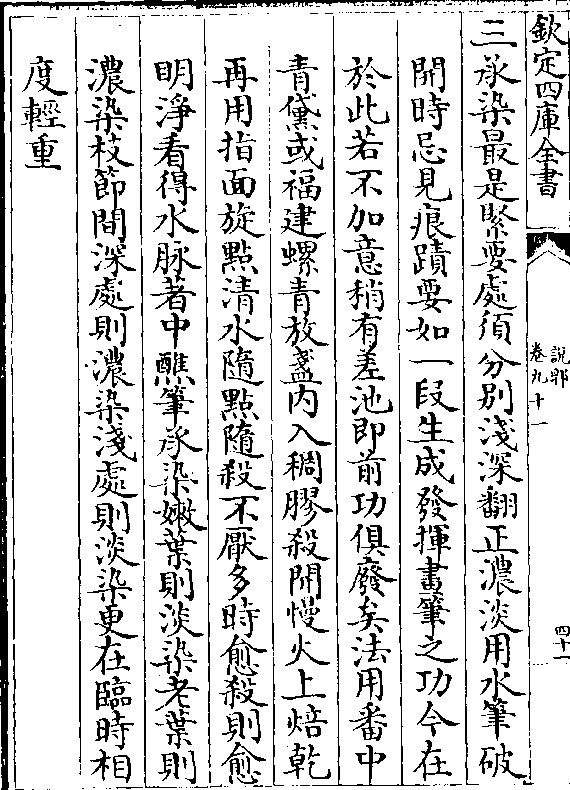 欽定四庫全書
說郛
卷九十一
四十一
三承染最是緊要處須分别淺深翻正濃淡用水筆破
開時忌見痕蹟要如一段生成發揮畫筆之功今在
於此若不加意稍有差池即前功俱廢矣法用番中
青黛或福建螺青放盞内入稠膠殺開慢火上焙乾
再用指面旋點清水隨點隨殺不厭多時愈殺則愈
明淨看得水脉著中醮筆承染嫩葉則淡染老葉則
濃染枝節間深處則濃染淺處則淡染更在臨時相
度輕重